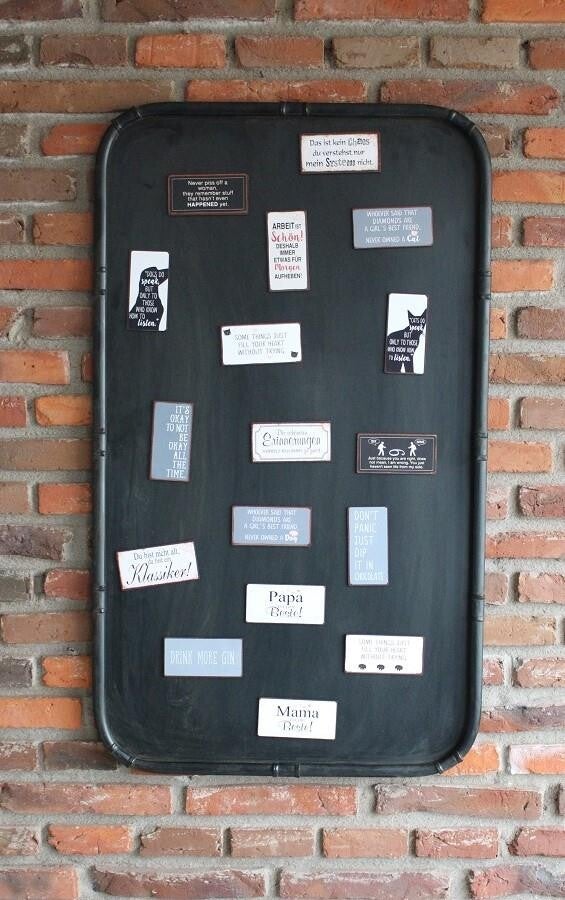 Das ist kein Chaos
du verstehst nur
mein System nicht.
Never piss off a
woman,
they remember stuff
that hasn't even
HAPPENED yet.
ARBEIT IST
Schön!
DESHALB
IMMER
ETWAS FÜR
Morgen
AUFHEBEN!
WHOEVER SAID THAT
DIAMONDS ARE
A GIRL'S BEST FRIEND,
NEVER OWNED A Cat
"DOGS DO
speak,
BUT
ONLY TO
THOSE
WHO KNOW
HOW TO
listen."
SOME THINGS JUST
FILL YOUR HEART
WITHOUT TRYING.
"CATS DO
speak,
BUT
ONLY TO THOSE
WHO KNOW HOW
TO
listen."
IT'S
OKAY
TO NOT
BE
OKAY
ALL
THE
TIME.
Die schönsten
Erinnerungen
Just because you are right, does
not mean, I am wrong. You just
haven't seen life from my side.
WHOEVER SAID THAT
DIAMONDS ARE
A GIRL'S BEST FRIEND,
NEVER OWNED A Dog
DON'T
PANIC
JUST
DIP
IT IN
CHOCOLATE
Du bist nicht alt,
du bist ein
Klassiker!
Papa
Beste!
DRINK MORE GIN
SOME THINGS JUST
FILL YOUR HEART
WITHOUT TRYING.
Mama
Beste!